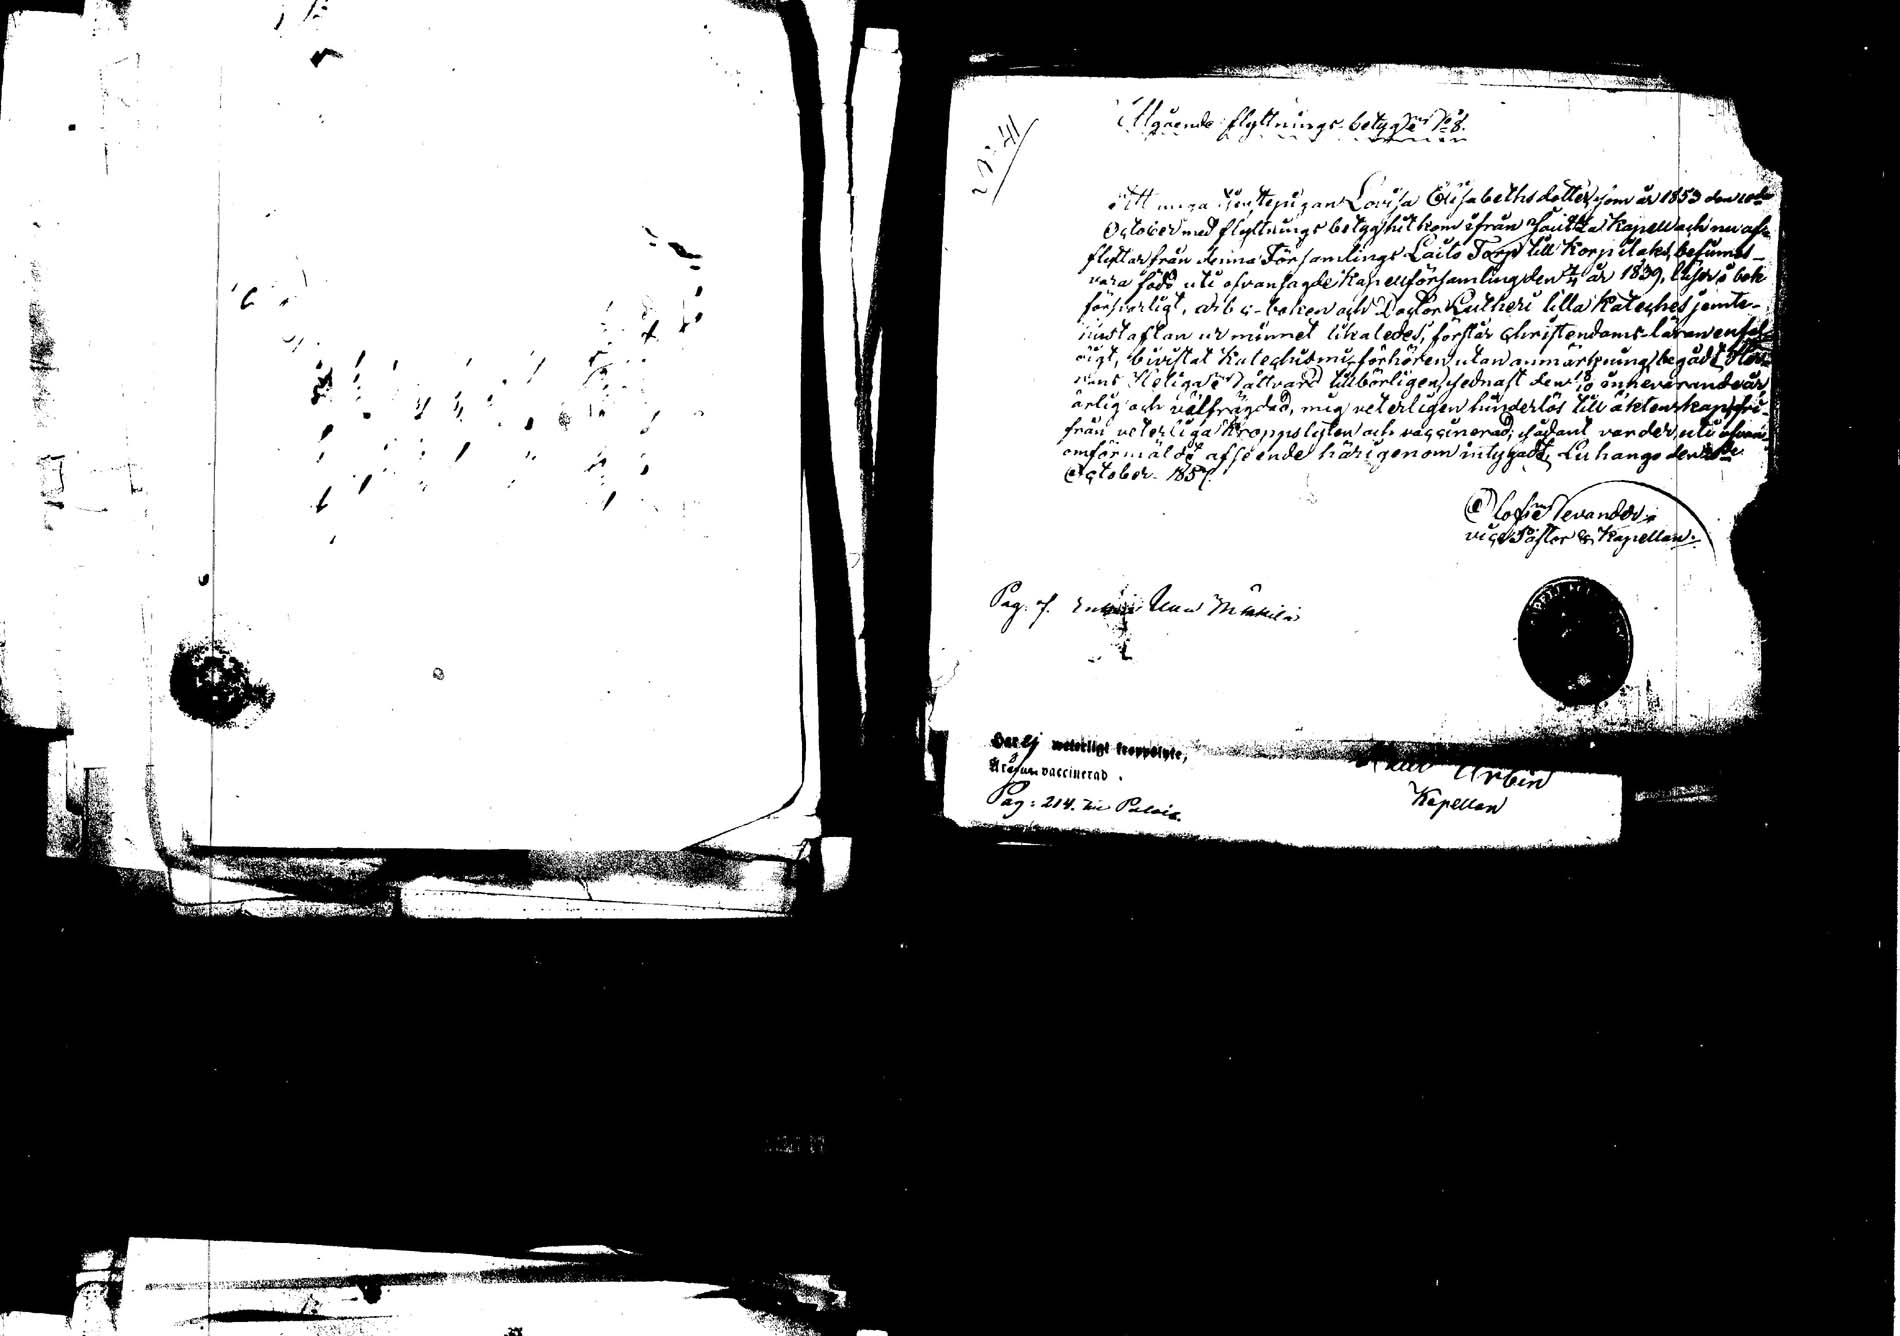 No 41
Utgående flyttnings-betyg No 8.
Att inga Lovisa Elisabethsdotter, som år 1853 den
October med flyttnings betyg hitkom ifrån Kapell och nu af-
flyttar från denna Församlings Laito Torp till Korpilaks, befunnits
vara född uti ofvansagde Kapellförsamling den år 1839, läser i bok
försvarligt, a-b-c-boken och Doctor Lutheri lilla Kateches jemte
hustaflan ur minnet likaledes, förstår Christendoms-läran enfal-
digt, bevistat Katechismi-förhören utan anmärkning, begått Her-
rans Heliga Nattvard tillbörligen, sednast den innevarande år
ärlig och välfrägdad, mig veterligen hinderlös till äktenskap, fri
från veterliga kroppslyten och vaccinerad; sådant varder uti ofvan-
omförmäldt afseende härigenom intygadt, Luhango den
October 1857.
Olof Levander
vice Pastor & Kapellan.
Pag. 7.
Har ej weterligt kroppslyte,
Är vaccinerad.
Pag: 214.
Urbin
Kapellan